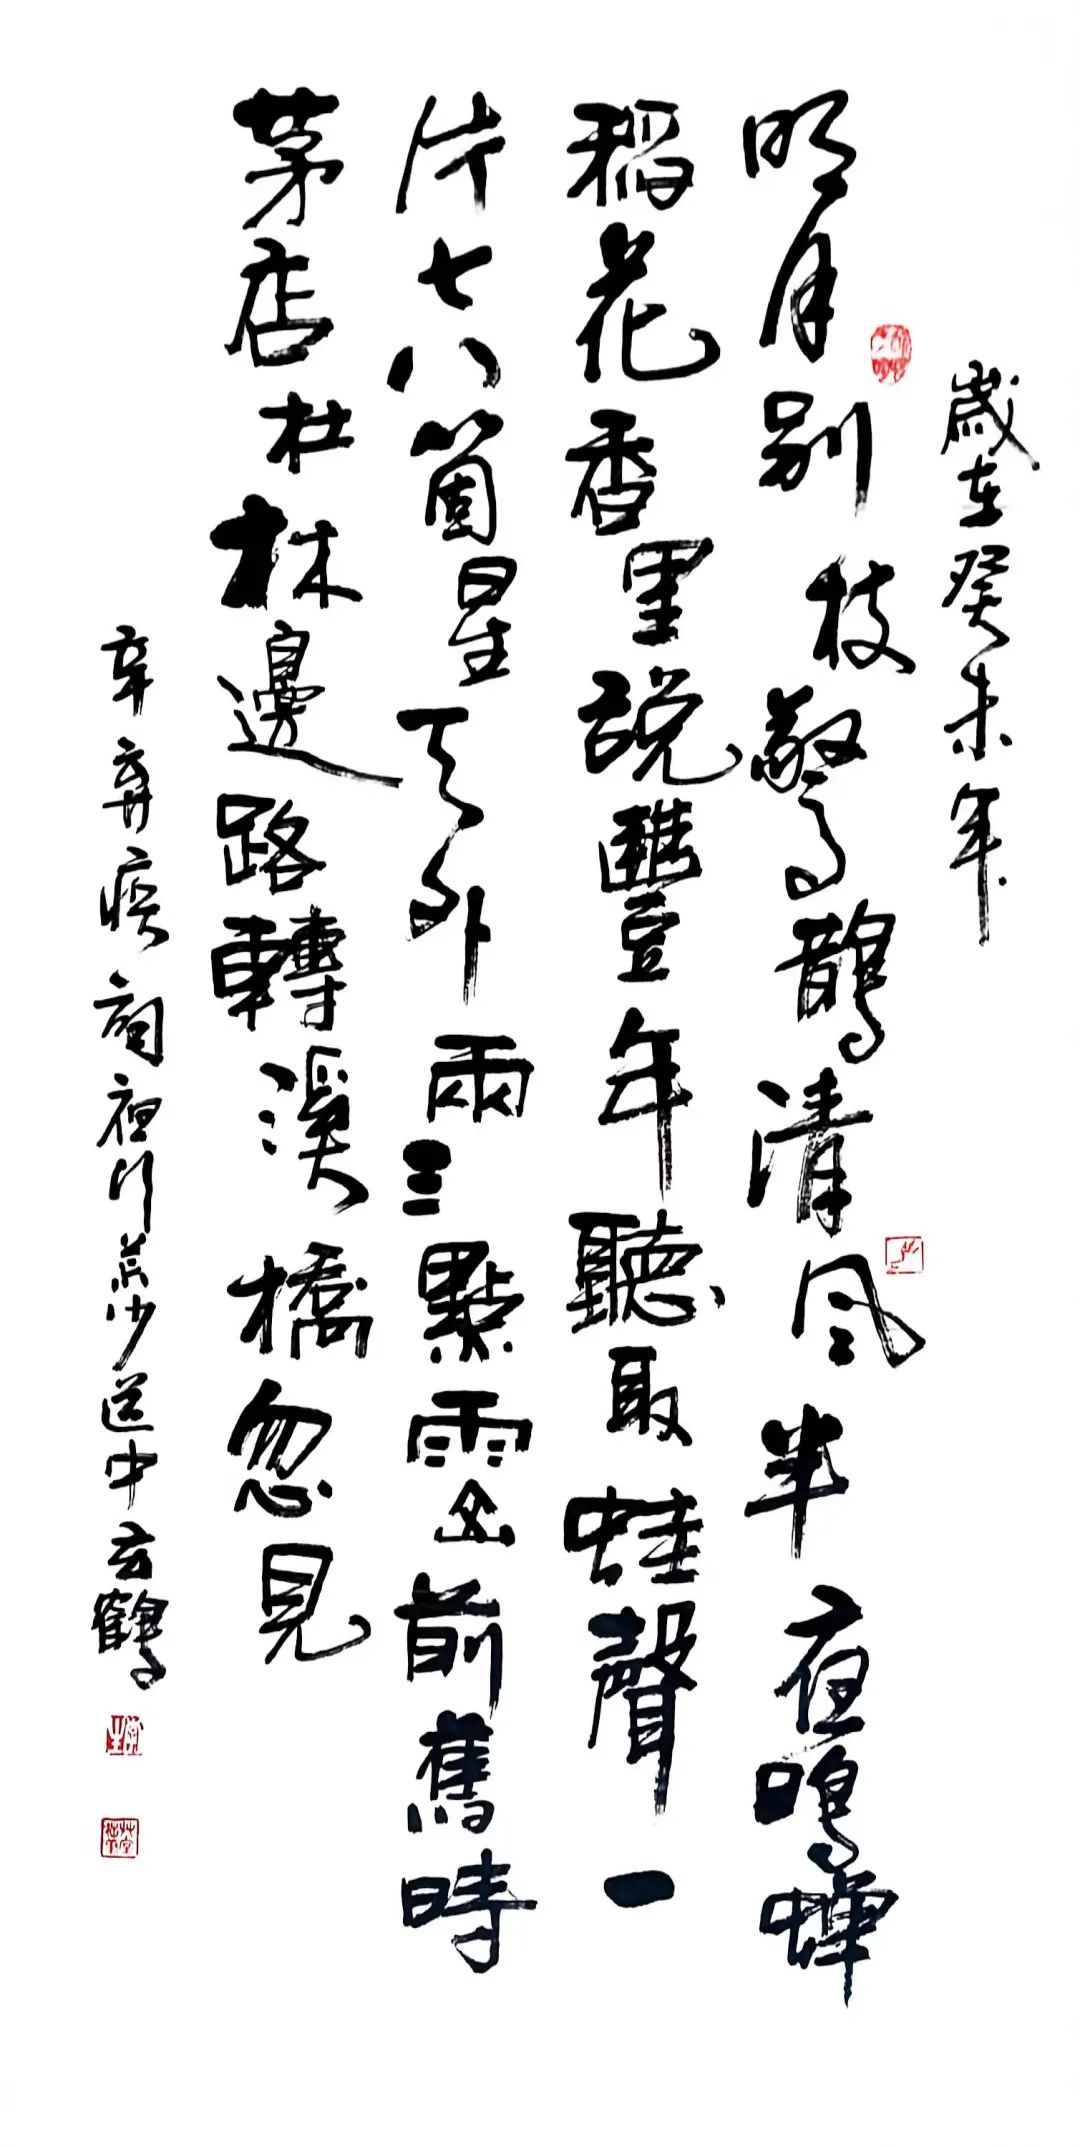 歲在癸未年
明月别枝驚鵲清风半夜鳴蟬
稻花香里說豐年聽取蛙聲一
片七八箇星天外兩三點雨山前舊時
茅店杜林邊路轉溪橋忽見
辛弃疾詞夜行黄沙道中云鶴